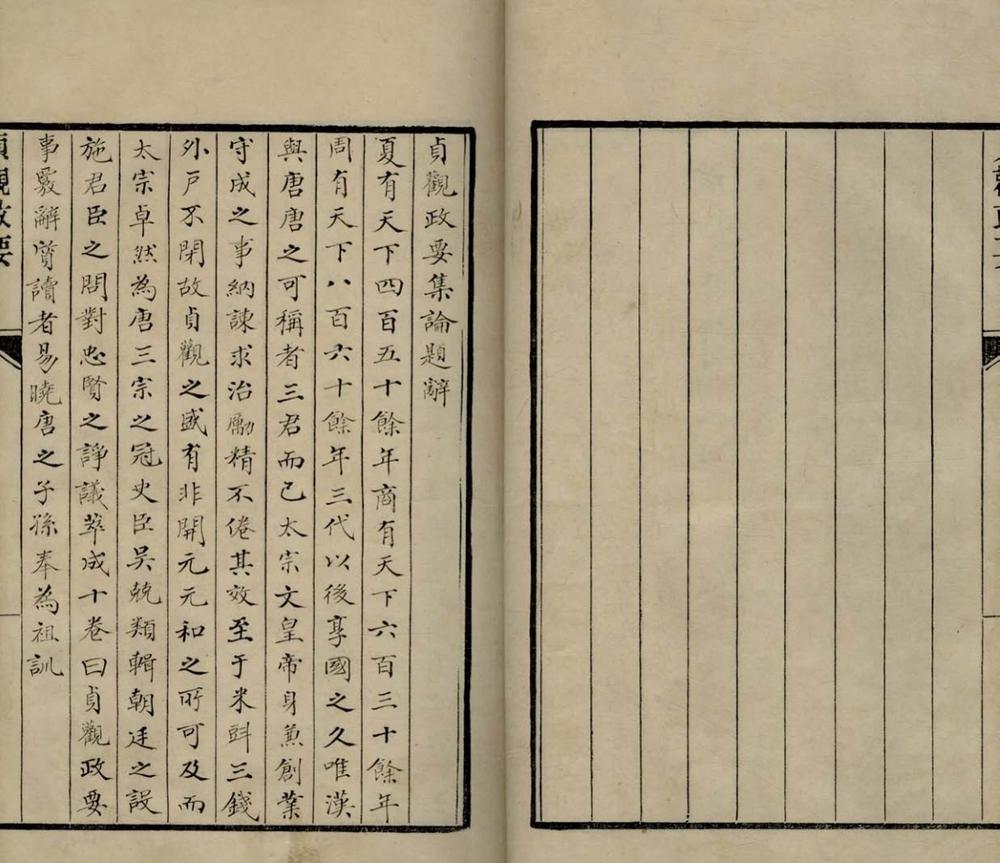 貞觀政要集論題辭
夏有天下四百五十餘年商有天下六百三十餘年
周有天下八百六十餘年三代以後享國之久唯漢
與唐唐之可稱者三君而已太宗文皇帝身兼創業
守成之事納諫求治勵精不倦其效至于米㪷三錢
外戶不閉故貞觀之盛有非開元元和之所可及而
太宗卓然為唐三宗之冠史臣吳兢類輯朝廷之設
施君臣之問對忠賢之諍議萃成十卷曰貞觀政要
事覈辭質讀者易曉唐之子孫奉為祖訓
貞觀政要